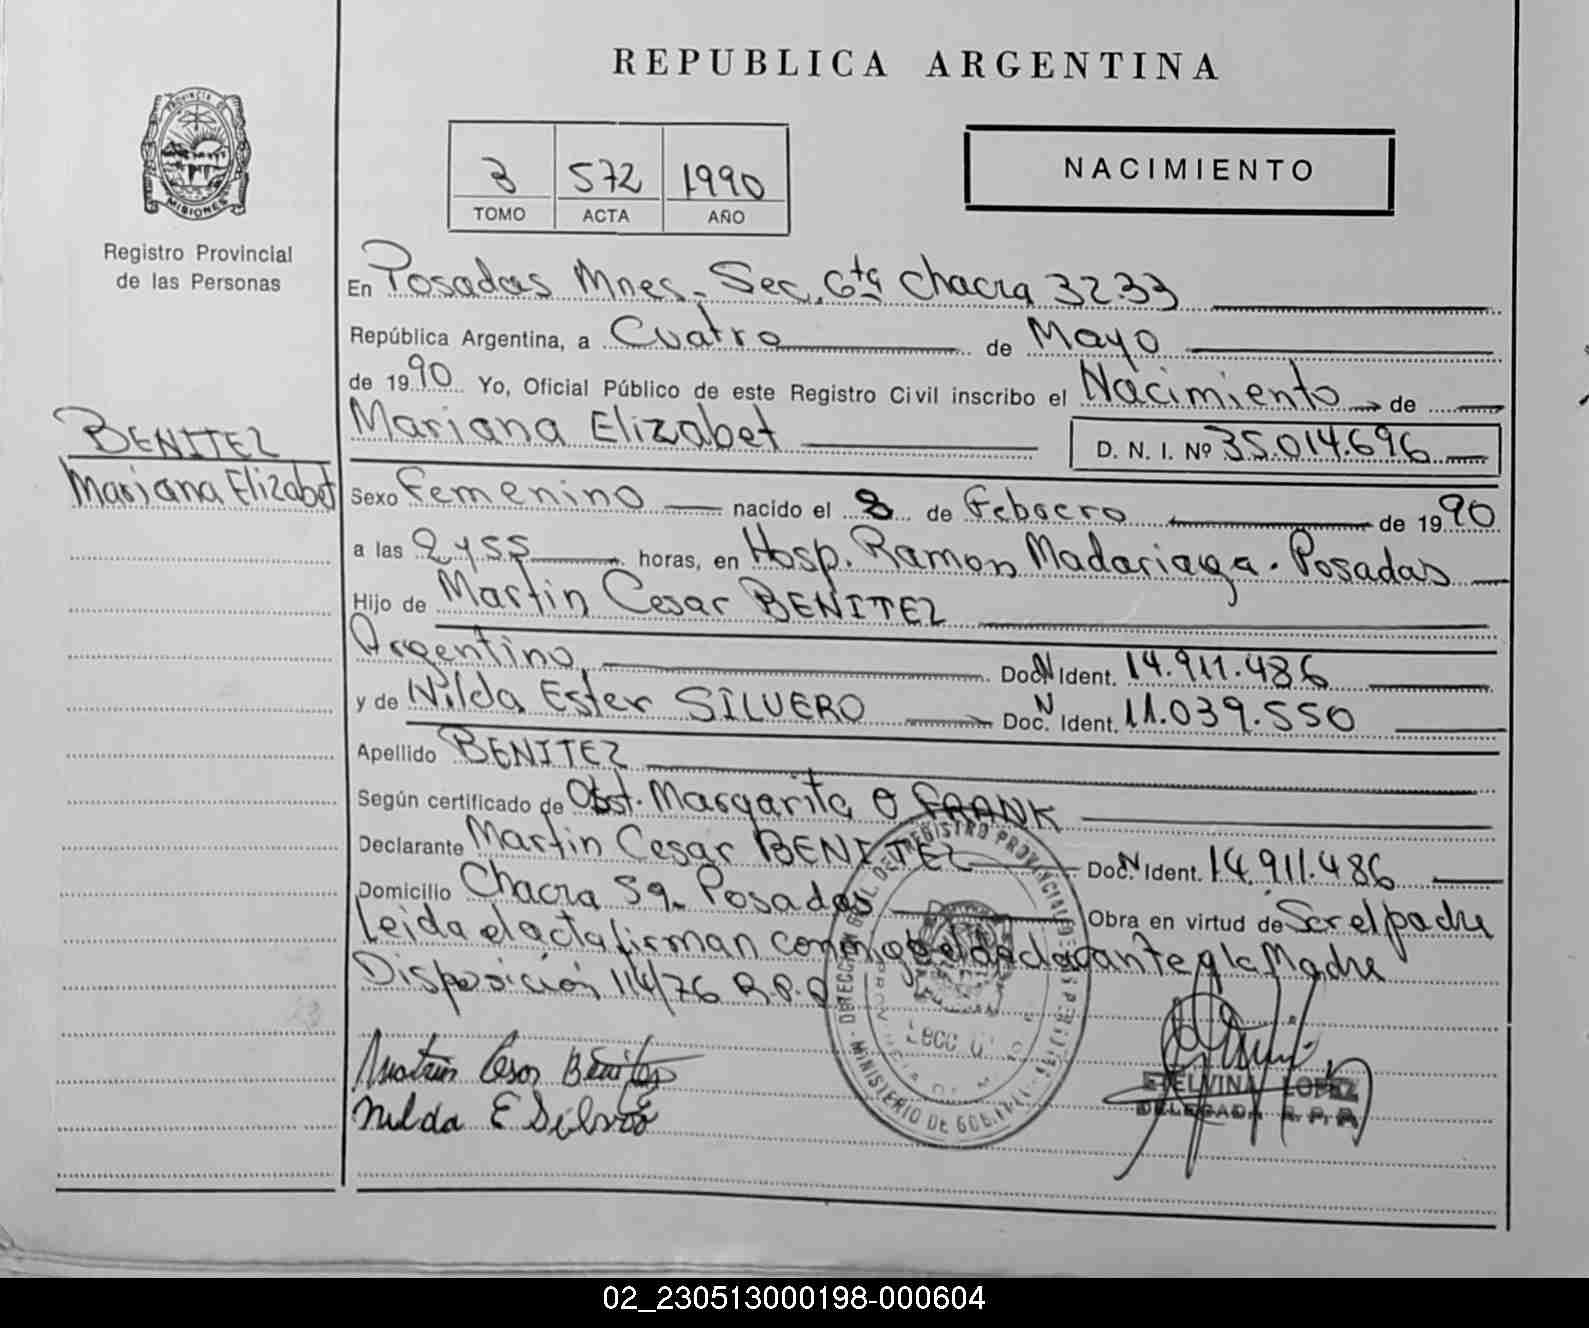 REPUBLICA ARGENTINA
PROVINCIA DE
MISIONES
Registro Provincial
de las Personas
3 572 1990
TOMO ACTA AÑO
NACIMIENTO
En Posadas Mnes. Sec. 6ta Chacra 32.33
República Argentina, a Cuatro de Mayo
de 1990 Yo, Oficial Público de este Registro Civil inscribo el Nacimiento de
Mariana Elizabet D. N. I. Nº 35.014.696
BENITEZ
Mariana Elizabet
Sexo Femenino nacido el 8 de Febrero de 1990
a las 2 y 55 horas, en Hosp. Ramon Madariaga. Posadas
Hijo de Martin Cesar BENITEZ
Argentino Doc. N Ident. 14.911.486
y de Nilda Ester SILVERO Doc. N Ident. 11.039.550
Apellido BENITEZ
Según certificado de Obst. Margarita O FRANK
Declarante Martin Cesar BENITEZ Doc. N Ident. 14.911.486
Domicilio Chacra 59. Posadas Obra en virtud de Ser el padre
Leida el acta firman conmigo el declarante y la Madre
Disposición 114/76 R.P.P
Martin Cesar Benitez
Nilda E Silvero
DIRECCION GRAL. DEL REGISTRO PROVINCIAL DE LAS PERSONAS
MINISTERIO DE GOBIERNO
ETELVINA LOPEZ
DELEGADA R. P. P.
02_230513000198-000604